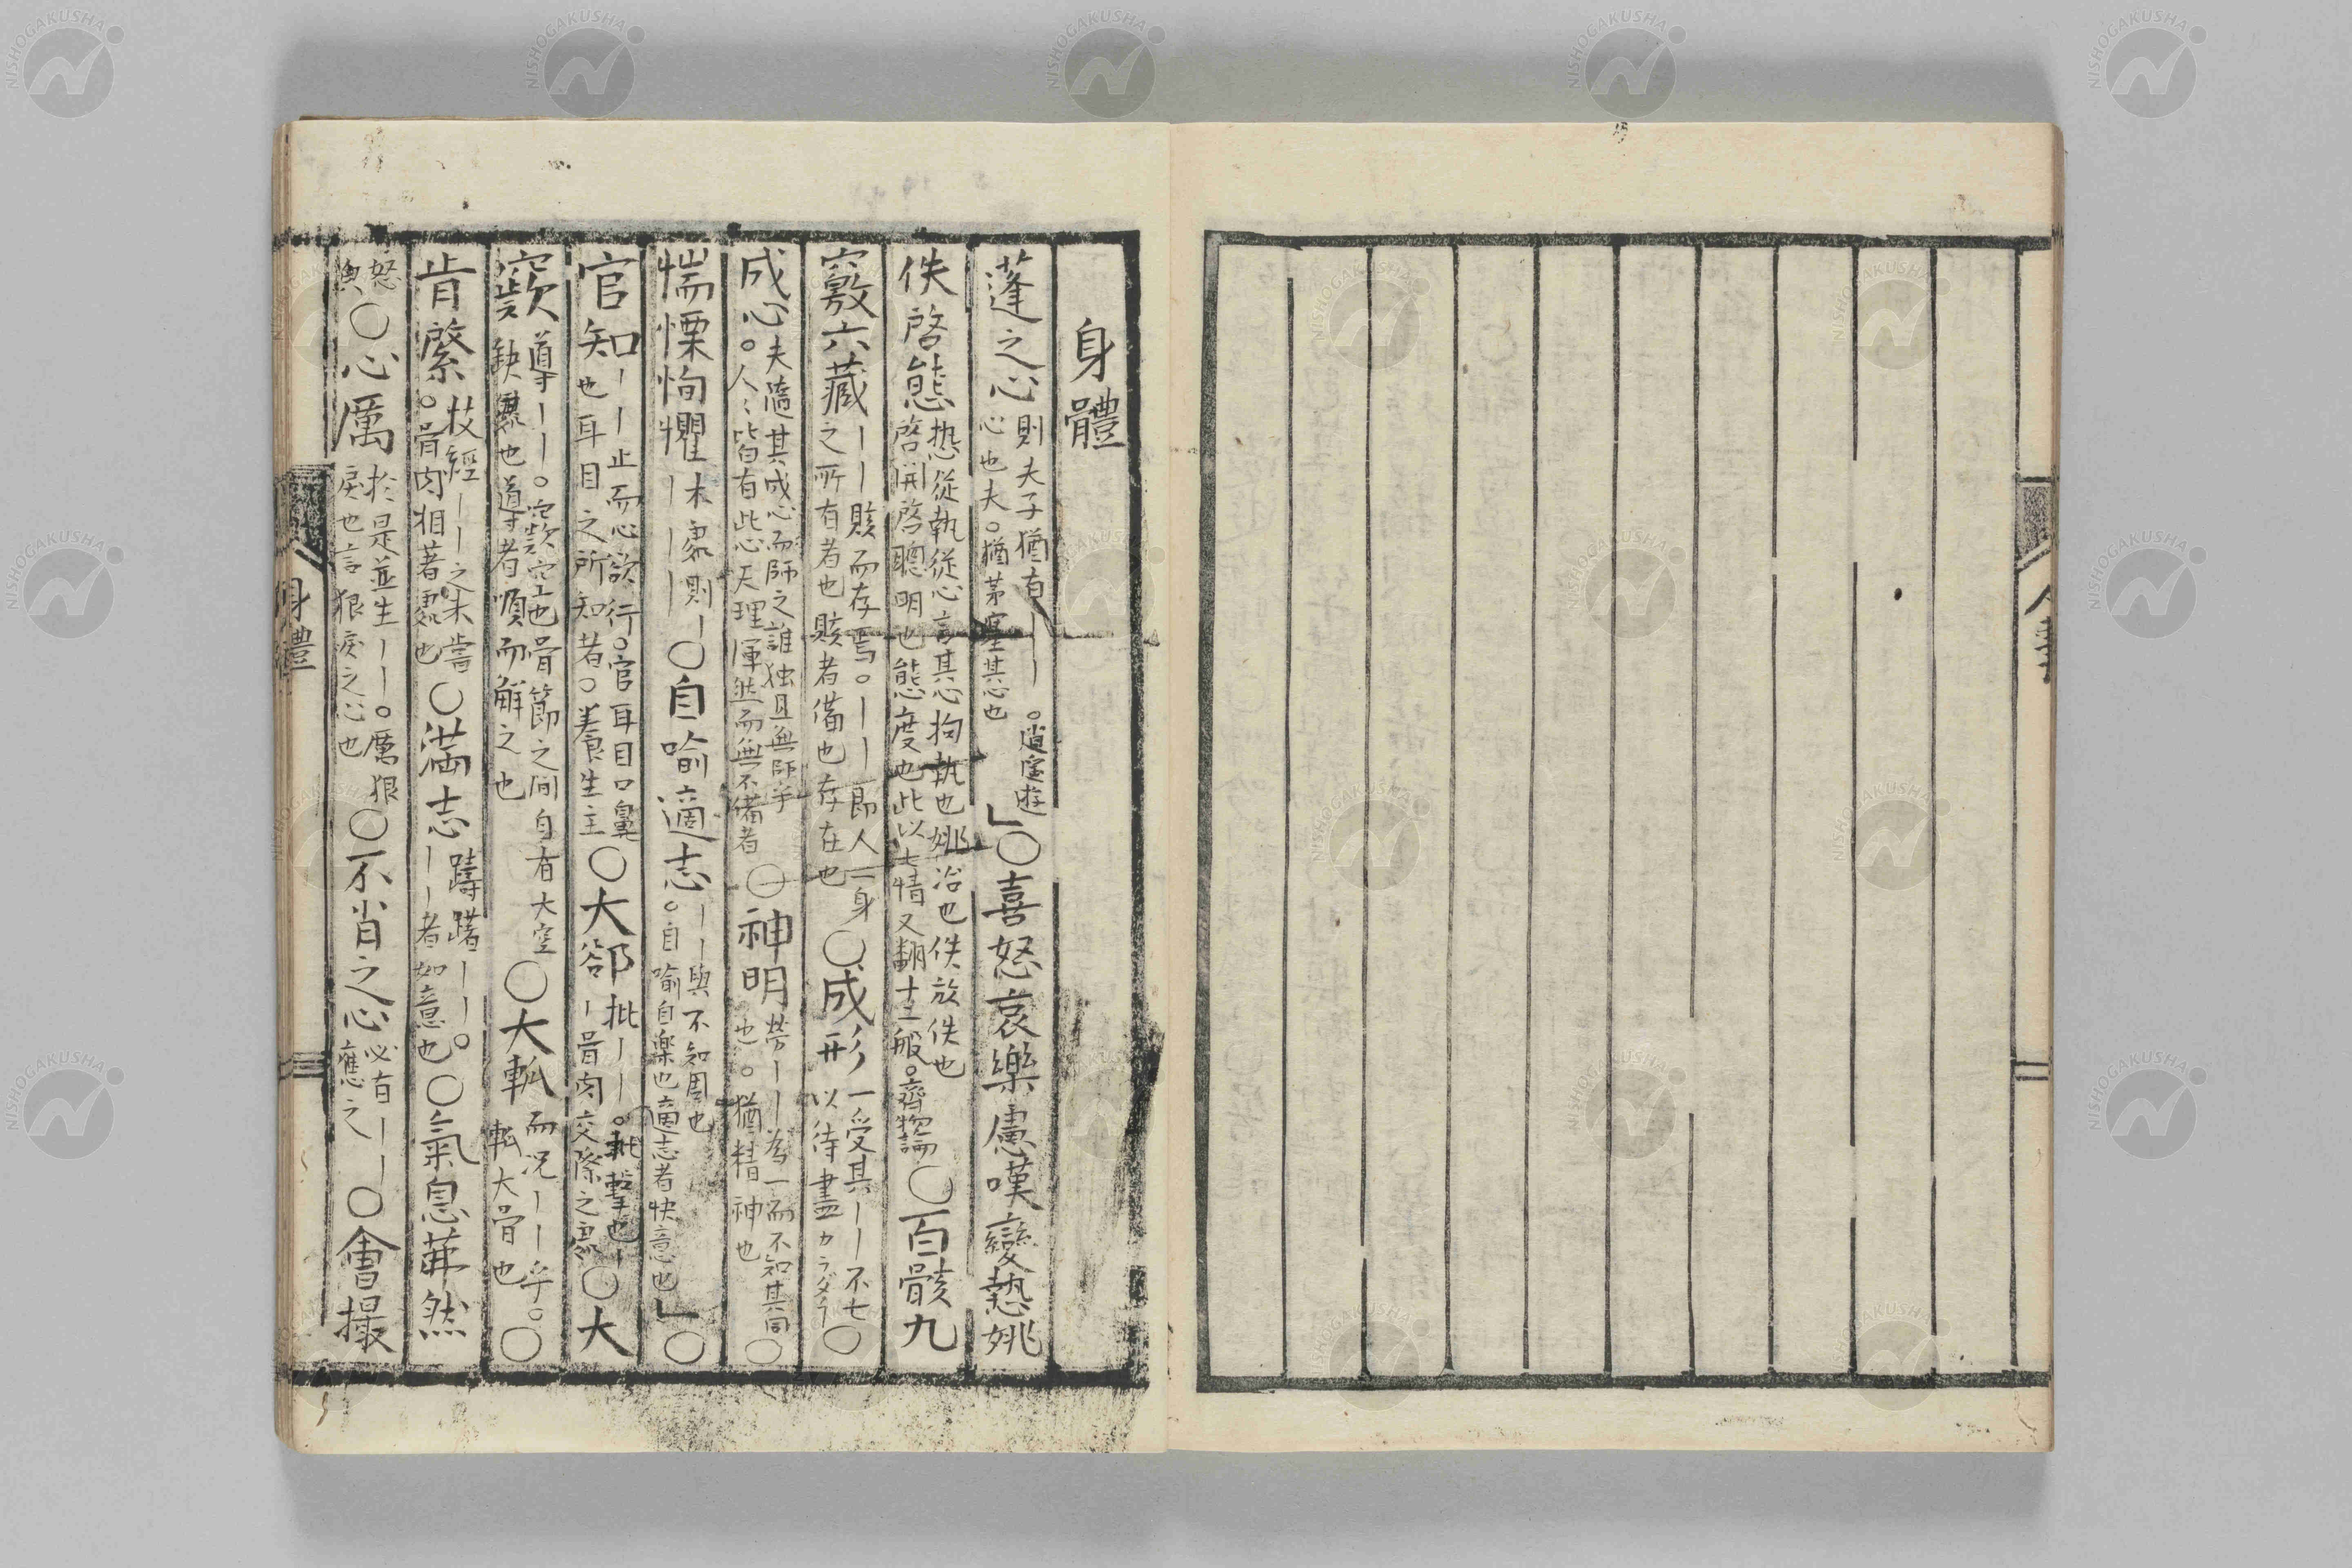 身體
蓬之心則夫子猶有｜｜｜。逍遙遊心也夫。猶茅塞其心也」○喜怒哀樂慮嘆變慹姚
佚啓態慹從執從心言其心拘執也姚冶也佚放佚也啓開啓聰明也態態度也此以七情又翻十二般。齊物論○百骸九
竅六藏｜｜｜賅而存焉。｜｜即人一身之所有者也賅者備也存在也○成形一受其｜｜不亡以待盡カラダナ○
成心夫隨其成心而師之誰独且無師乎。人〻皆有此心天理渾然而無不備者○神明勞｜｜為一而不知其同也。猶精神也○
惴慄恂懼木處則｜｜｜｜○自喻適志｜｜與不知周也。自喻自楽也適志者快意也」○
官知｜｜止而心欲行。官耳目口鼻也耳目之所知者。養生主○大郤批｜｜。批擊也｜｜骨肉交際之處○大
窾導｜｜。窾空也骨節之间自有大空缺處也導者順而觧之也○大軱而况｜｜乎。軱大骨也○
肯綮技經｜｜之未嘗。骨肉相著處也○満志躊躇｜｜。｜｜者如意也○氣息茀然
○心厲於是並生｜｜。厲狠戾也言狠戾之心也○不肖之心必有｜｜應之○會撮
身體
NISHOGAKUSHA